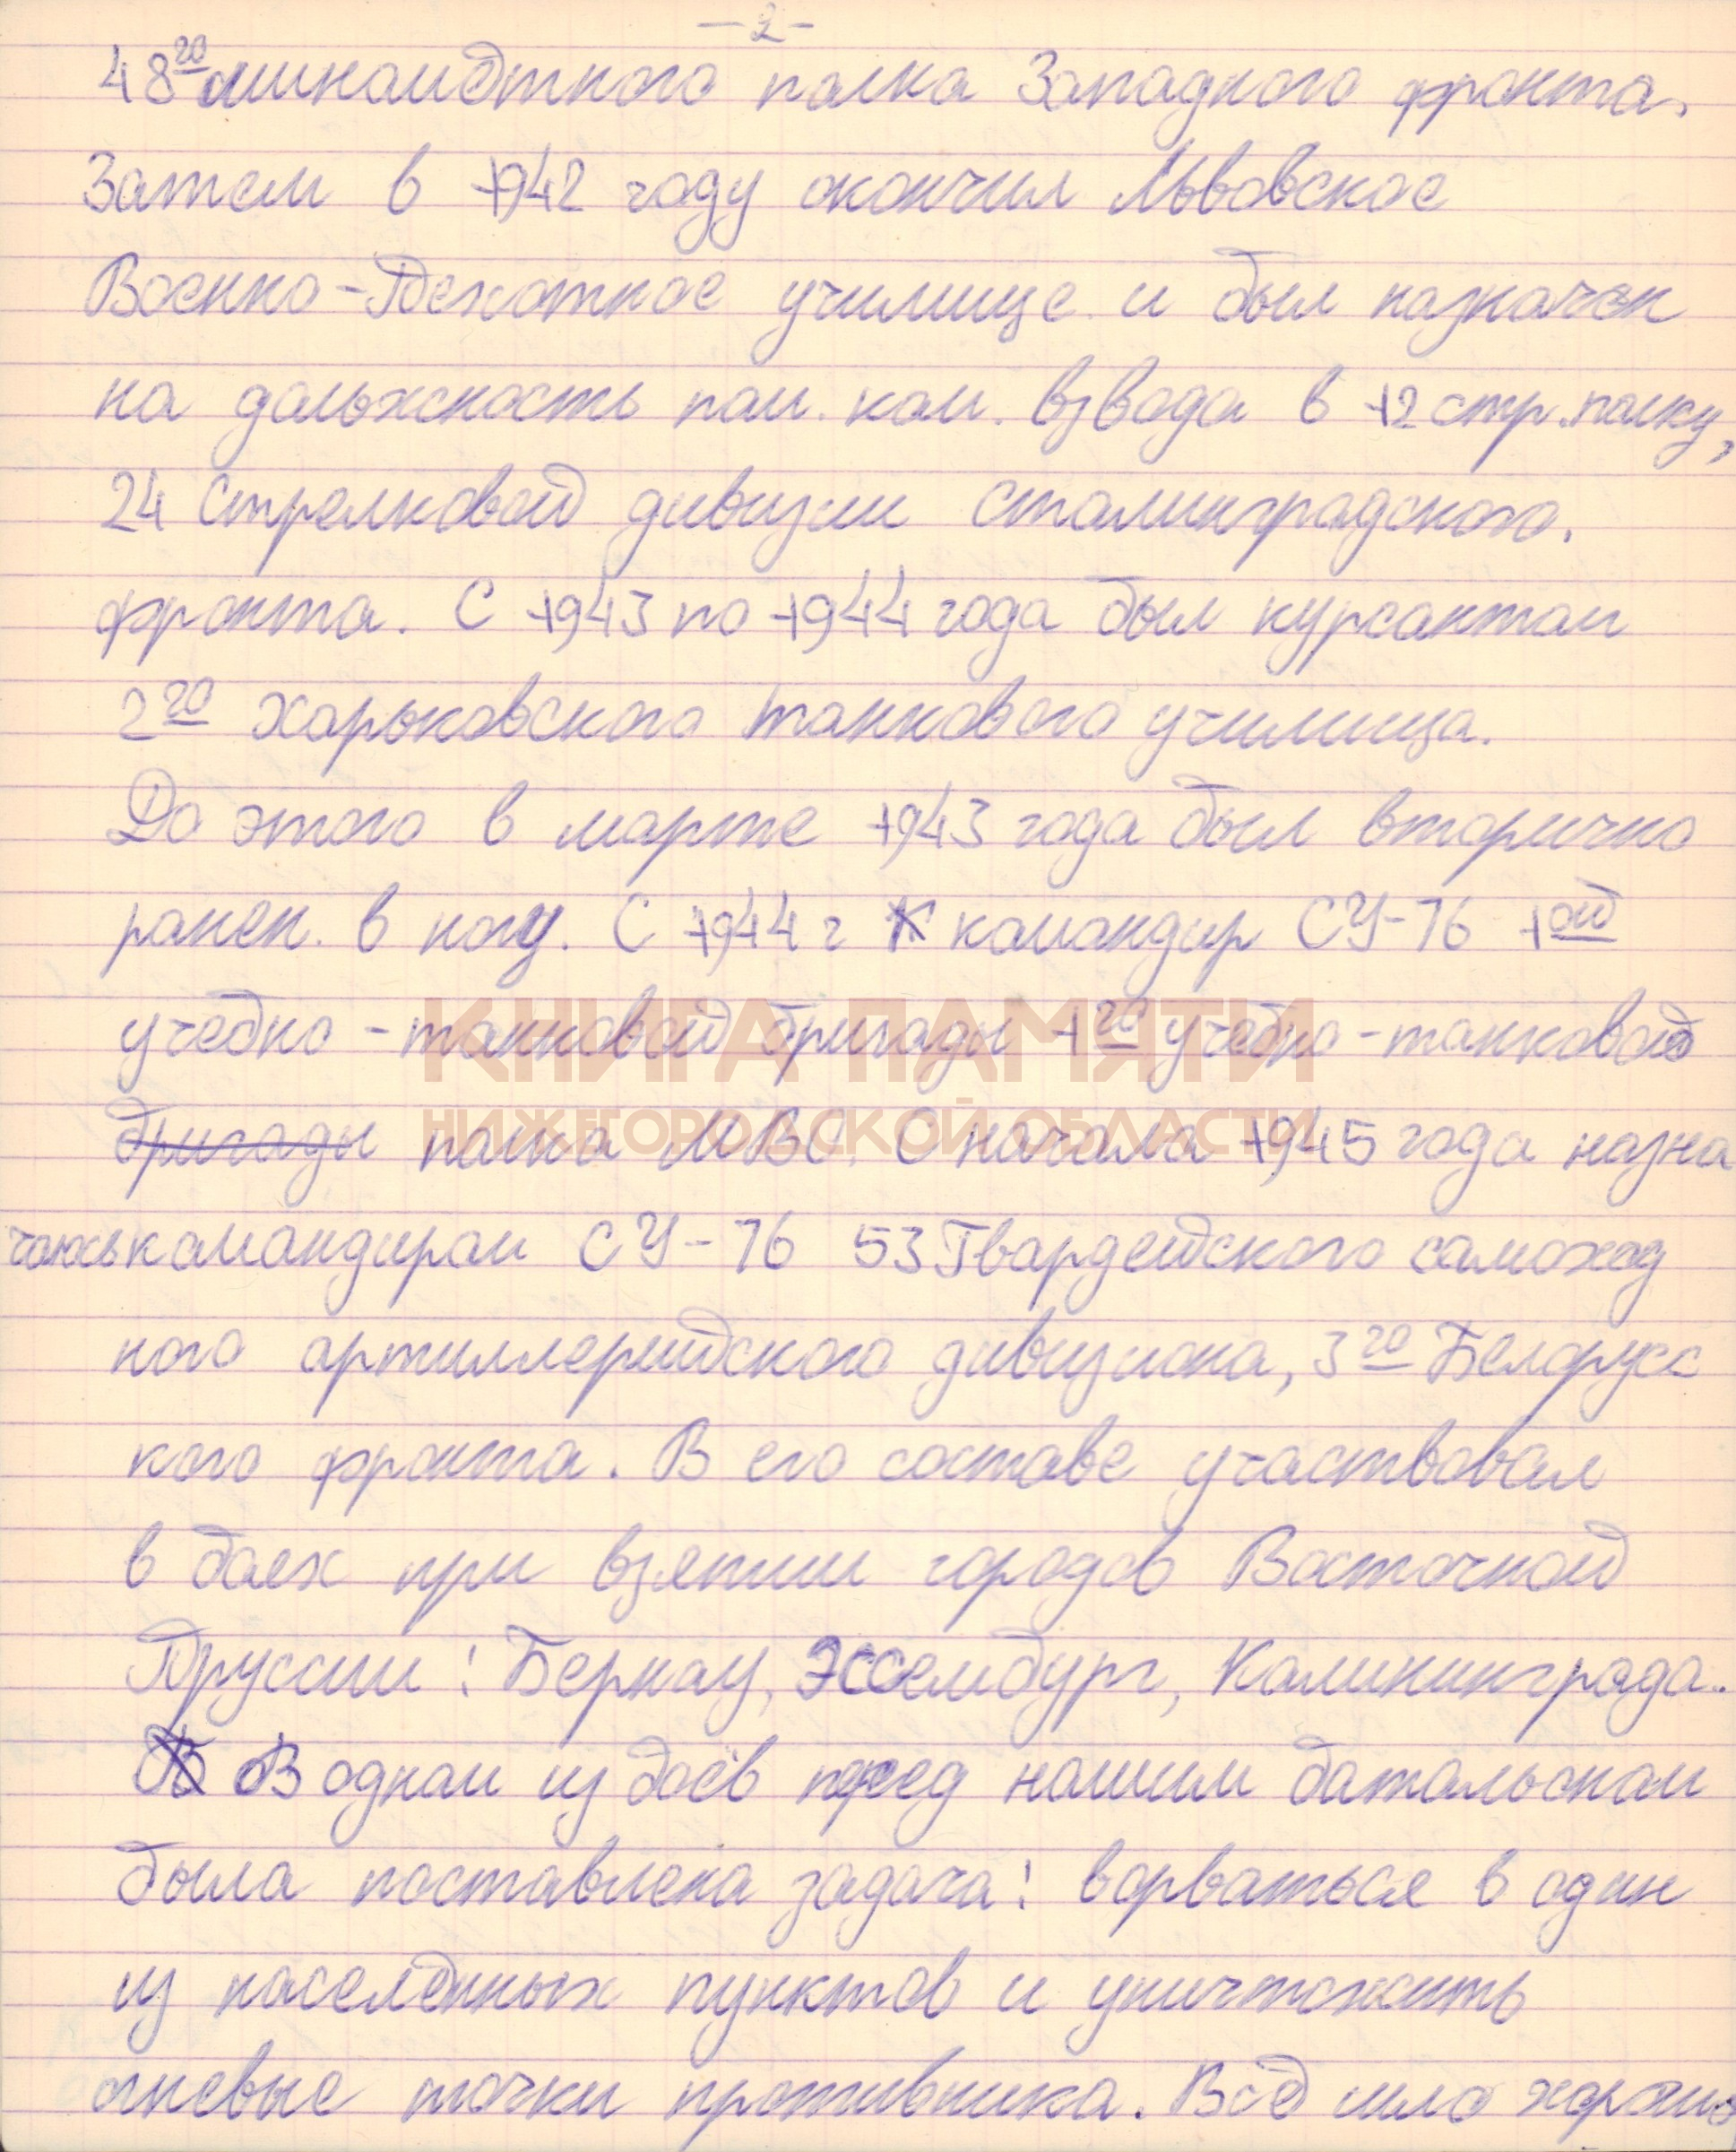 -2-
48го миномётного полка Западного фронта.
Затем в 1942 году окончил Львовское
Военно-Пехотное училище и был назначен
на дольжность пом. ком. взвода в 12 стр. полку,
24 Стрелковой дивизии Сталинградского.
фронта. С 1943 по 1944 года был курсантом
2го Харьковского танкового училища.
До этого в марте 1943 года был вторично
ранен. в ногу. С 1944 г командир СУ-76 1ой
учебно-танковой бригады 1го учебно-танковой
КНИГА ПАМЯТИ
бригады полка МВО. С начала 1945 года назна
НИЖЕГОРОДСКОЙ ОБЛАСТИ
чаюсь командиром СУ-76 53 Гвардейского самоход
ного артиллерийского дивизиона, 3го Белорусс
кого фронта. В его составе участвовал
в боях при взятии городов Восточной
Пруссии: Бернау, Эссембург, Калининграда..
В одном из боёв перед нашим батальоном
была поставлена задача: ворваться в один
из населённых пунктов и уничтожить
огневые точки противника. Всё шло хорошо